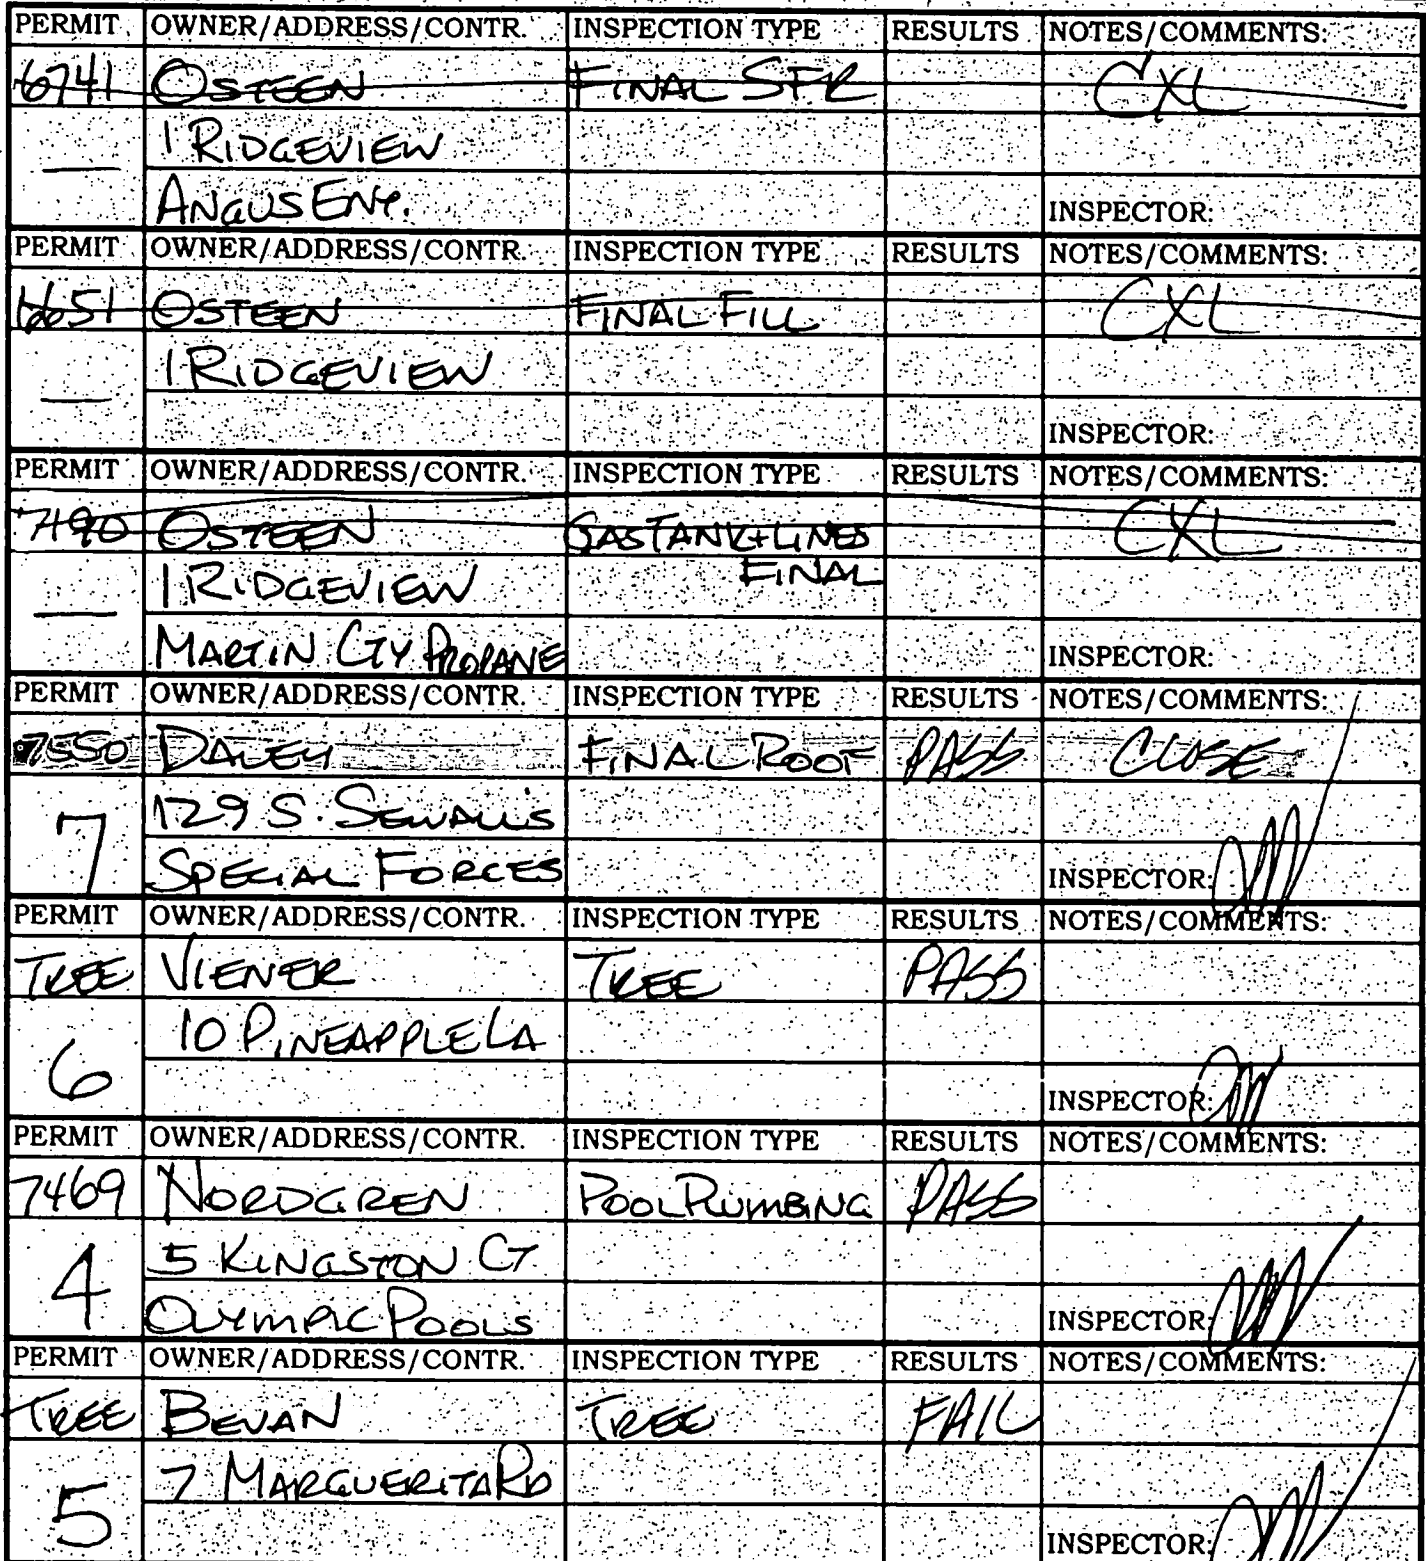 PERMIT OWNER/ADDRESS/CONTR. INSPECTION TYPE RESULTS NOTES/COMMENTS:
6741 OSTEEN FINAL SFR CXL
— 1 RIDGEVIEW
ANGUS ENT. INSPECTOR:
PERMIT OWNER/ADDRESS/CONTR. INSPECTION TYPE RESULTS NOTES/COMMENTS:
6651 OSTEEN FINAL FILL CXL
— 1 RIDGEVIEW
INSPECTOR:
PERMIT OWNER/ADDRESS/CONTR. INSPECTION TYPE RESULTS NOTES/COMMENTS:
7190 OSTEEN GAS TANK+LINES CXL
FINAL
— 1 RIDGEVIEW
MARTIN CTY PROPANE INSPECTOR:
PERMIT OWNER/ADDRESS/CONTR. INSPECTION TYPE RESULTS NOTES/COMMENTS:
7550 DALEY FINAL ROOF PASS CLOSE
7 129 S. SEWALL'S
SPECIAL FORCES INSPECTOR:
PERMIT OWNER/ADDRESS/CONTR. INSPECTION TYPE RESULTS NOTES/COMMENTS:
TREE VIENER TREE PASS
6 10 PINEAPPLE LA
INSPECTOR:
PERMIT OWNER/ADDRESS/CONTR. INSPECTION TYPE RESULTS NOTES/COMMENTS:
7469 NORDGREN POOL PLUMBING PASS
4 5 KINGSTON CT
OLYMPIC POOLS INSPECTOR:
PERMIT OWNER/ADDRESS/CONTR. INSPECTION TYPE RESULTS NOTES/COMMENTS:
TREE BEVAN TREE FAIL
5 7 MARGUERITA RD
INSPECTOR: